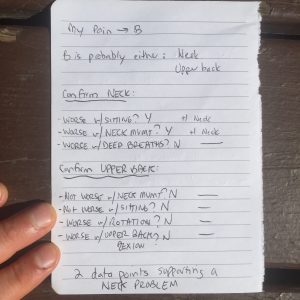 My Pain → B
B is probably either: Neck
Upper back
Confirm NECK:
- WORSE w/ SITTING? Y +1 Neck
- WORSE w/ NECK MVMT? Y +1 Neck
- WORSE w/ DEEP BREATHS? N —
Confirm UPPER BACK:
- NOT WORSE w/ NECK MVMT? N —
- NOT WORSE w/ SITTING? N —
- WORSE w/ ROTATION? N —
- WORSE w/ UPPER BACK? N —
FLEXION
2 data points supporting a
NECK PROBLEM